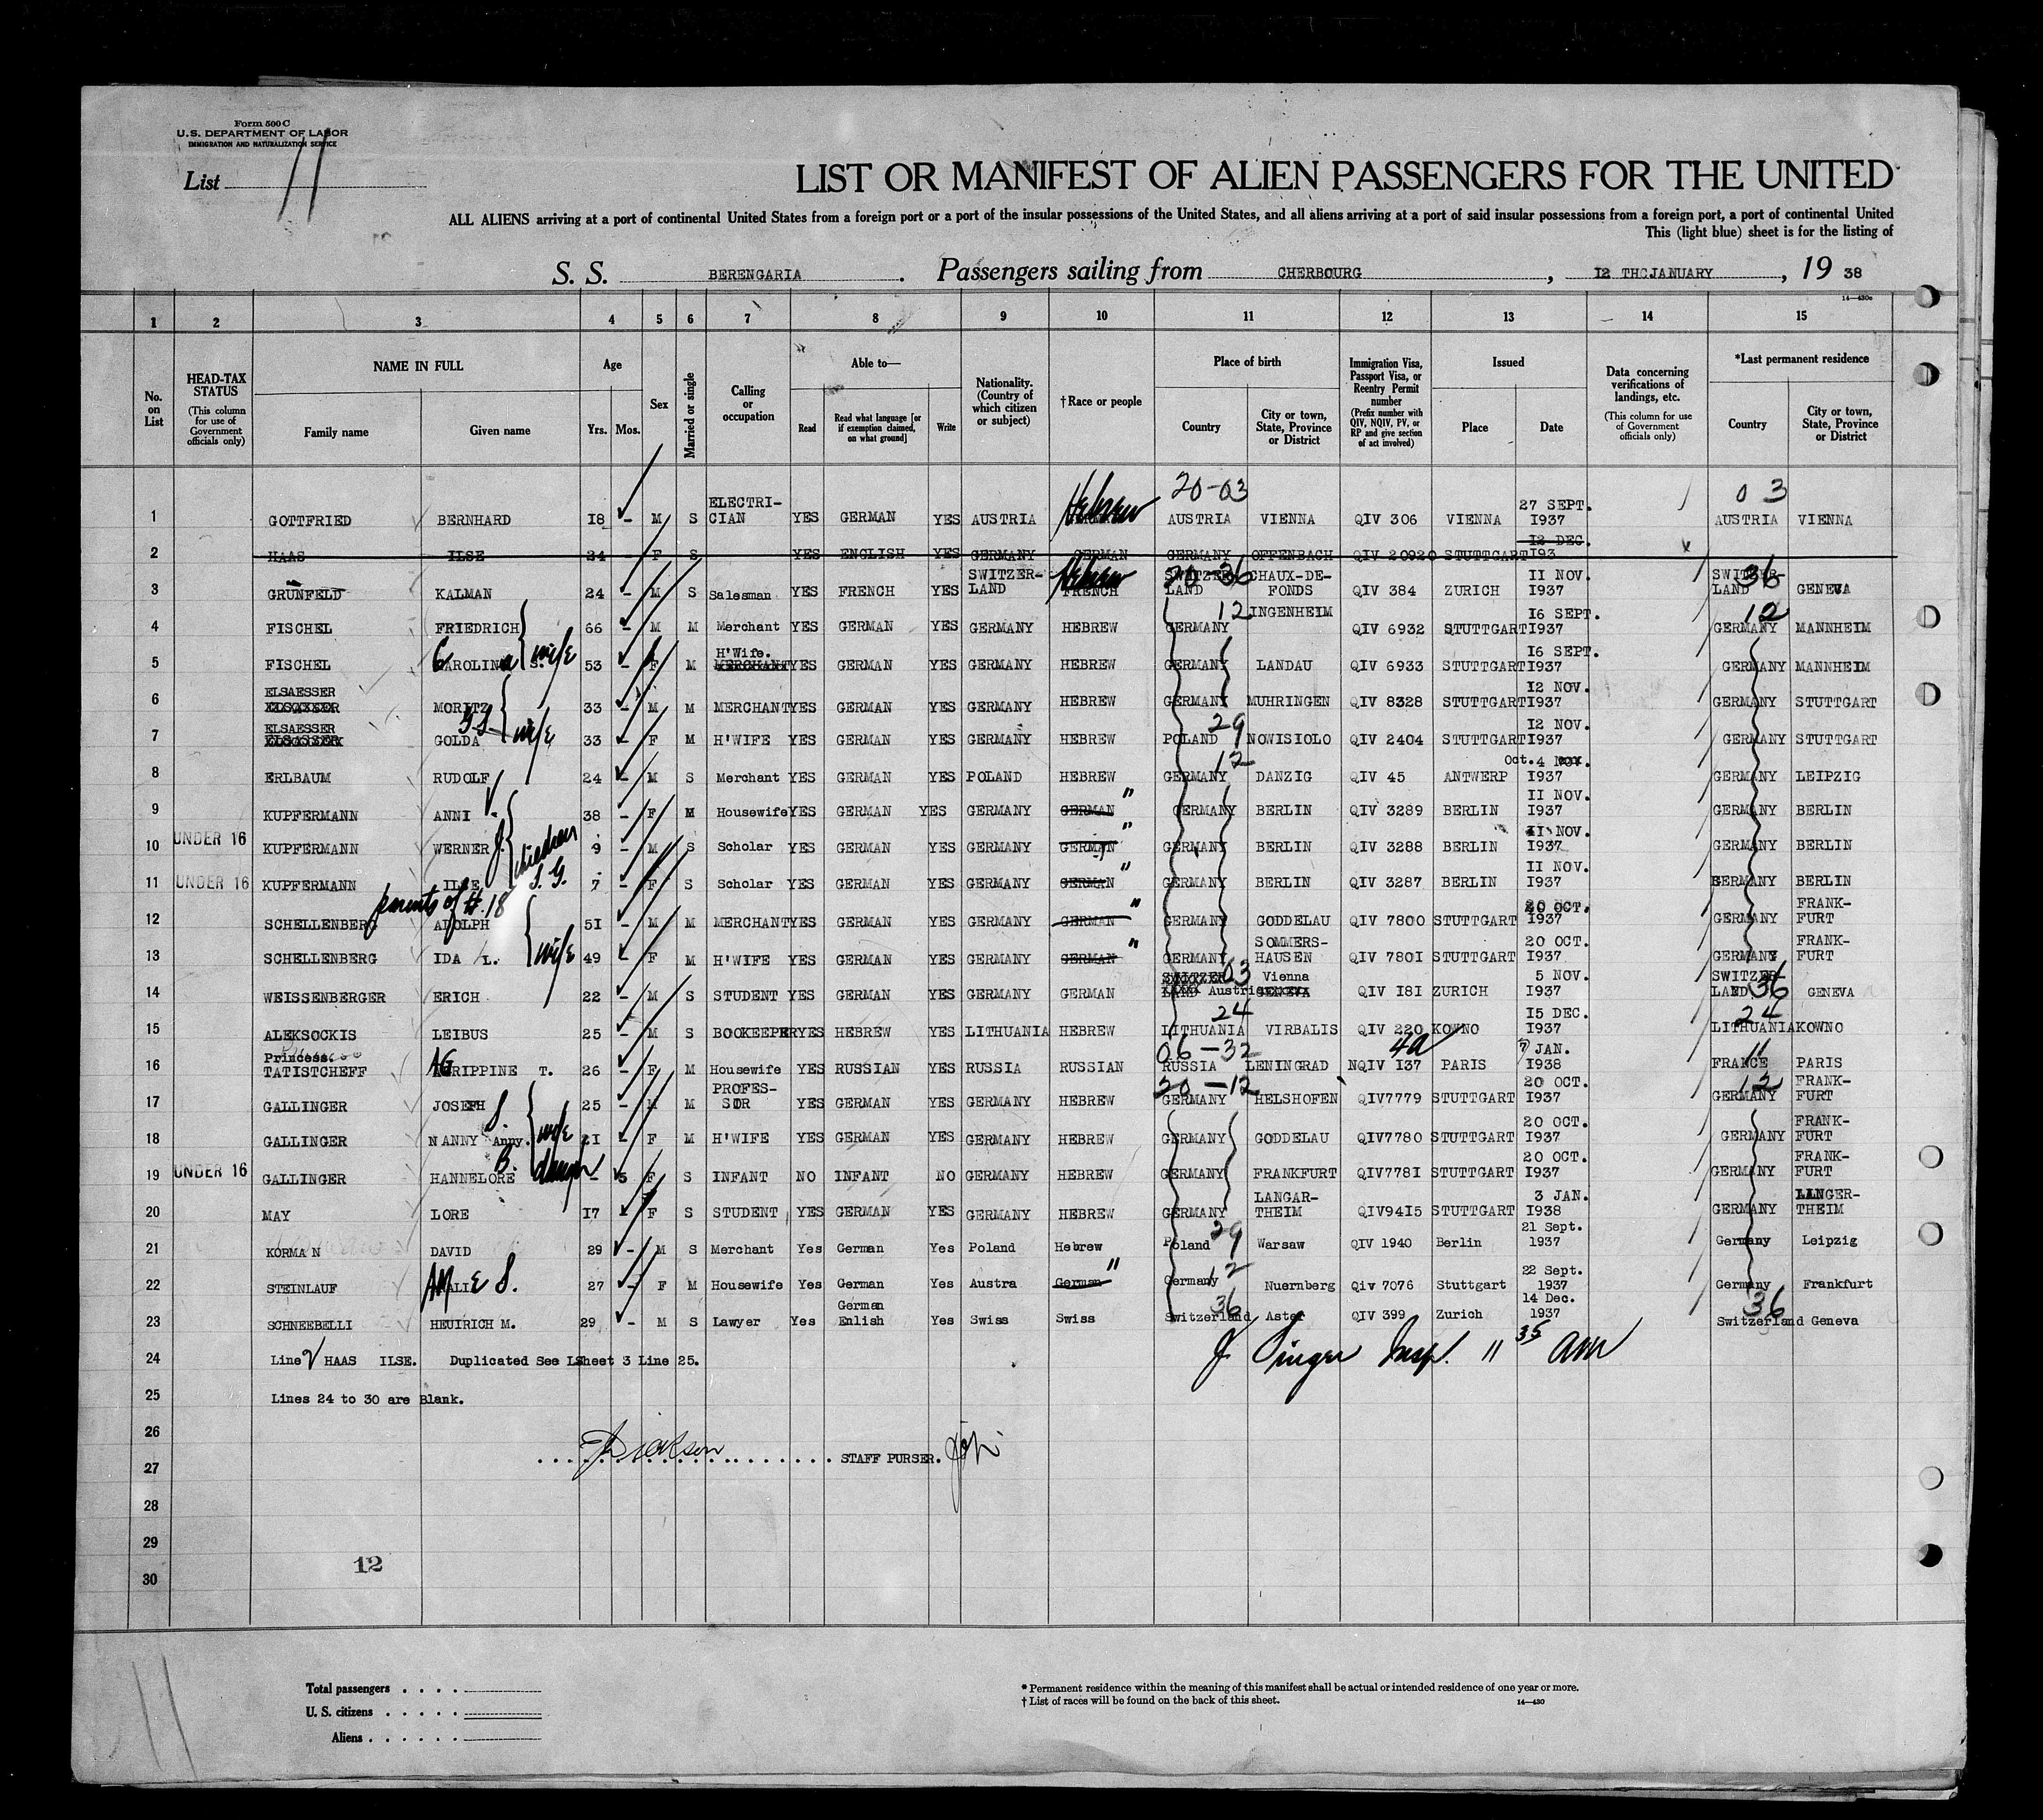 Form 500 C
U.S. DEPARTMENT OF LABOR
IMMIGRATION AND NATURALIZATION SERVICE
List 11
LIST OR MANIFEST OF ALIEN PASSENGERS FOR THE UNITED
ALL ALIENS arriving at a port of continental United States from a foreign port or a port of the insular possessions of the United States, and all aliens arriving at a port of said insular possessions from a foreign port, a port of continental United
This (light blue) sheet is for the listing of
S. S. BERENGARIA. Passengers sailing from CHERBOURG, 12 TH JANUARY, 19 38
14—430c
1 2 3 4 5 6 7 8 9 10 11 12 13 14 15
No. on List
HEAD-TAX STATUS (This column for use of Government officials only)
NAME IN FULL
Family name Given name
Age Yrs. Mos.
Sex
Married or single
Calling or occupation
Able to— Read Read what language [or if exemption claimed, on what ground] Write
Nationality. (Country of which citizen or subject)
†Race or people
Place of birth Country City or town, State, Province or District
Immigration Visa, Passport Visa, or Reentry Permit number (Prefix number with QIV, NQIV, PV, or RP and give section of act involved)
Issued Place Date
Data concerning verifications of landings, etc. (This column for use of Government officials only)
*Last permanent residence Country City or town, State, Province or District
20-03 03
1 GOTTFRIED BERNHARD 18 - M S ELECTRI-CIAN YES GERMAN YES AUSTRIA Hebrew AUSTRIA VIENNA QIV 306 VIENNA 27 SEPT. 1937 AUSTRIA VIENNA
2 HAAS ILSE 24 - F S YES ENGLISH YES GERMANY GERMAN GERMANY OFFENBACH QIV 20920 STUTTGART 12 DEC. 193
3 GRUNFELD KALMAN 24 - M S Salesman YES FRENCH YES SWITZER-LAND Hebrew FRENCH SWITZER-LAND 20-36 CHAUX-DE-FONDS QIV 384 ZURICH 11 NOV. 1937 SWITZER-LAND 36 GENEVA
4 FISCHEL FRIEDRICH 66 - M M Merchant YES GERMAN YES GERMANY HEBREW GERMANY 12 INGENHEIM QIV 6932 STUTTGART 16 SEPT. 1937 GERMANY 12 MANNHEIM
5 FISCHEL CAROLINA S. wife 53 - F M H'Wife. MERCHANT YES GERMAN YES GERMANY HEBREW GERMANY LANDAU QIV 6933 STUTTGART 16 SEPT. 1937 GERMANY MANNHEIM
6 ELSAESSER MORITZ 33 - M M MERCHANT YES GERMAN YES GERMANY HEBREW GERMANY MUHRINGEN QIV 8328 STUTTGART 12 NOV. 1937 GERMANY STUTTGART
7 ELSAESSER GOLDA wife 33 - F M H'WIFE YES GERMAN YES GERMANY HEBREW POLAND 29 NOWISIOLO QIV 2404 STUTTGART 12 NOV. 1937 GERMANY STUTTGART
8 ERLBAUM RUDOLF 24 - M S Merchant YES GERMAN YES POLAND HEBREW GERMANY 12 DANZIG QIV 45 ANTWERP Oct. 4 NOV. 1937 GERMANY LEIPZIG
9 KUPFERMANN ANNI V. 38 - F M Housewife YES GERMAN YES GERMANY GERMAN " GERMANY BERLIN QIV 3289 BERLIN 11 NOV. 1937 GERMANY BERLIN
10 UNDER 16 KUPFERMANN WERNER J. children 9 - M S Scholar YES GERMAN YES GERMANY GERMAN " GERMANY BERLIN QIV 3288 BERLIN 11 NOV. 1937 GERMANY BERLIN
11 UNDER 16 KUPFERMANN ILSE S. G. 7 - F S Scholar YES GERMAN YES GERMANY GERMAN " GERMANY BERLIN QIV 3287 BERLIN 11 NOV. 1937 GERMANY BERLIN
parents of #. 18
12 SCHELLENBERG ADOLPH 51 - M M MERCHANT YES GERMAN YES GERMANY GERMAN " GERMANY GODDELAU QIV 7800 STUTTGART 20 OCT. 1937 GERMANY FRANK-FURT
13 SCHELLENBERG IDA L. wife 49 - F M H'WIFE YES GERMAN YES GERMANY GERMAN " GERMANY SOMMERS-HAUSEN QIV 7801 STUTTGART 20 OCT. 1937 GERMANY FRANK-FURT
14 WEISSENBERGER ERICH 22 - M S STUDENT YES GERMAN YES GERMANY GERMAN SWITZER-LAND 03 Austria Vienna GENEVA QIV 181 ZURICH 5 NOV. 1937 SWITZER-LAND 36 GENEVA
15 ALEKSOCKIS LEIBUS 25 - M S BOOKEEPER YES HEBREW YES LITHUANIA HEBREW LITHUANIA 24 VIRBALIS QIV 220 KOWNO 15 DEC. 1937 LITHUANIA 24 KOWNO
16 Princess. TATISTCHEFF AGRIPPINE T. 26 - F M Housewife YES RUSSIAN YES RUSSIA RUSSIAN 06-32 RUSSIA LENINGRAD 4a NQIV 137 PARIS 7 JAN. 1938 FRANCE 11 PARIS
17 GALLINGER JOSEPH S. 25 - M M PROFES-SOR YES GERMAN YES GERMANY HEBREW 20-12 GERMANY HELSHOFEN QIV7779 STUTTGART 20 OCT. 1937 GERMANY 12 FRANK-FURT
18 GALLINGER NANNY Anny. wife 21 - F M H'WIFE YES GERMAN YES GERMANY HEBREW GERMANY GODDELAU QIV7780 STUTTGART 20 OCT. 1937 GERMANY FRANK-FURT
19 UNDER 16 GALLINGER HANNELORE B. - 5 F S INFANT NO INFANT NO GERMANY HEBREW GERMANY FRANKFURT QIV7781 STUTTGART 20 OCT. 1937 GERMANY FRANK-FURT
20 MAY LORE 17 - F S STUDENT YES GERMAN YES GERMANY HEBREW GERMANY LANGAR-THEIM QIV9415 STUTTGART 3 JAN. 1938 GERMANY LANGER-THEIM
21 KORMAN DAVID 29 - M S Merchant Yes German Yes Poland Hebrew Poland 29 Warsaw QIV 1940 Berlin 21 Sept. 1937 Germany Leipzig
22 STEINLAUF AMALIE S. 27 - F M Housewife Yes German Yes Austra German " Germany 12 Nuernberg Qiv 7076 Stuttgart 22 Sept. 1937 Germany Frankfurt
23 SCHNEEBELLI HEUIRICH M. 29 - M S Lawyer Yes German Enlish Yes Swiss Swiss Switzerland 36 Aster QIV 399 Zurich 14 Dec. 1937 Switzerland 36 Geneva
24 Line 2 HAAS ILSE. Duplicated See LSheet 3 Line 25.
J. Singer Insp. 11 35 AM
25 Lines 24 to 30 are Blank.
26
27 STAFF PURSER.
28
29
12
30
Total passengers . . . .
U. S. citizens . . . . .
Aliens . . . . . .
* Permanent residence within the meaning of this manifest shall be actual or intended residence of one year or more.
† List of races will be found on the back of this sheet.
14—430
11